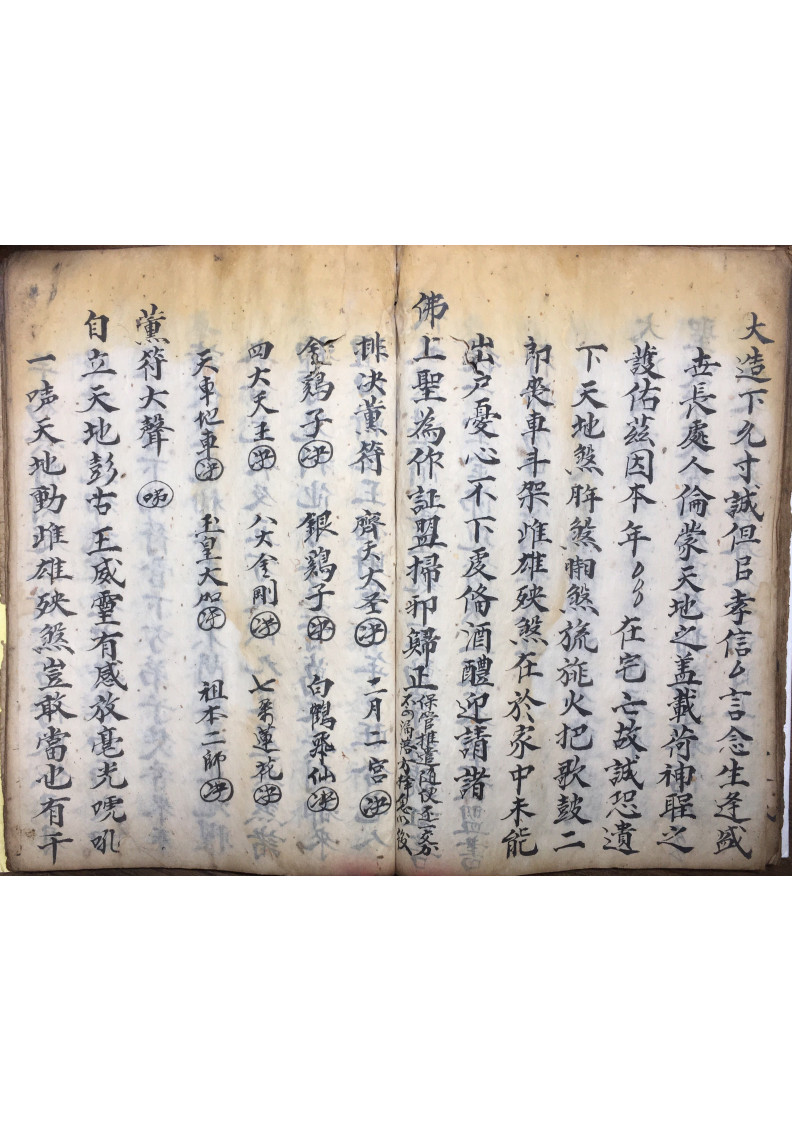 大造下允寸誠但㠯孝信々言念生逢盛
世長處人倫蒙天地之盖載荷神聖之
護佑茲因本年 在宅亡故誠恐遺
下天地煞眸煞煞旒旎火把歌鼓二
郎喪車斗架雌雄殃煞在於家中未能
出戶憂心不下虔俻酒醴迎請諸
佛上聖為作証盟掃邪歸正
保管推遣隨使
排决薰符 齊天大圣决 二月二宮决
金鷄子决 銀鷄子决 白鶴飛仙决
四大天王决 八大金剛决 七朶蓮花决
天車地車决 玉皇大 决 祖本二師决
薰符大聲
自立天地彭古王威靈有感放毫光唬吼
一声天地動雌雄殃煞豈敢當也有千